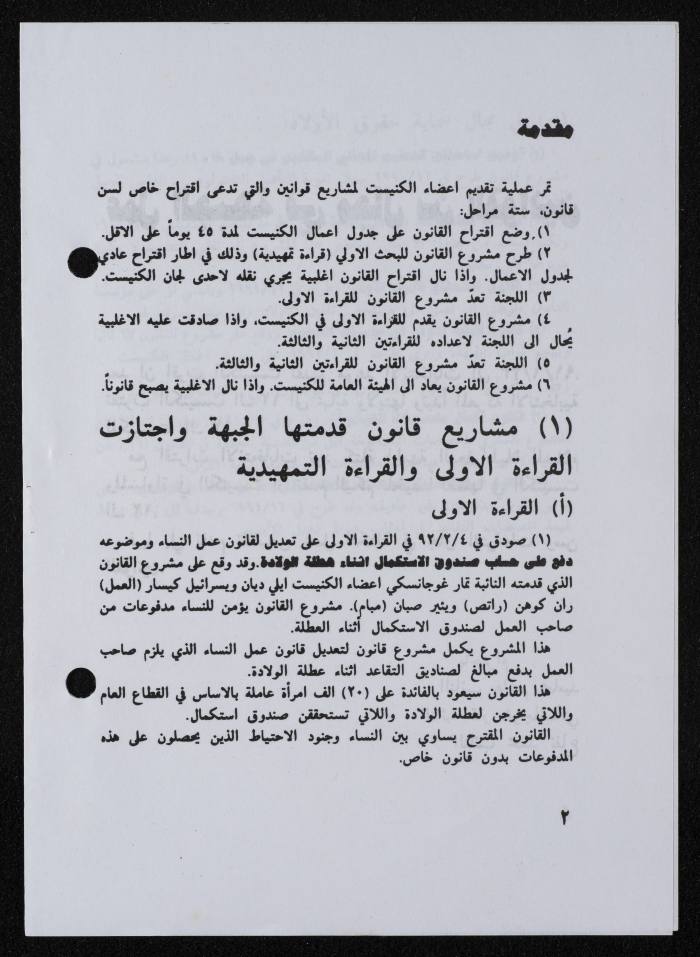 مقدمة
تمر عملية تقديم اعضاء الكنيست لمشاريع قوانين والتي تدعى اقتراح خاص لسن
قانون، ستة مراحل:
١) وضع اقتراح القانون على جدول اعمال الكنيست لمدة ٤٥ يوماً على الاقل.
٢) طرح مشروع القانون للبحث الاولي (قراءة تمهيدية) وذلك في اطار اقتراح عادي
لجدول الاعمال. واذا نال اقتراح القانون اغلبية يجري نقله لاحدى لجان الكنيست.
٣) اللجنة تعدّ مشروع القانون للقراءة الاولى.
٤) مشروع القانون يقدم للقراءة الاولى في الكنيست، واذا صادقت عليه الاغلبية
يُحال الى اللجنة لاعداده للقراءتين الثانية والثالثة.
٥) اللجنة تعدّ مشروع القانون للقراءتين الثانية والثالثة.
٦) مشروع القانون يعاد الى الهيئة العامة للكنيست. واذا نال الاغلبية يصبح قانوناً.
(١) مشاريع قانون قدمتها الجبهة واجتازت
القراءة الاولى والقراءة التمهيدية
(أ) القراءة الاولى
(١) صودق في ٩٢/٢/٤ في القراءة الاولى على تعديل لقانون عمل النساء وموضوعه
دفع على حساب صندوق الاستكمال اثناء عطلة الولادة. وقد وقع على مشروع القانون
الذي قدمته النائبة تمار غوجانسكي اعضاء الكنيست ايلي ديان ويسرائيل كيسار (العمل)
ران كوهن (راتص) ويئير صبان (مبام). مشروع القانون يؤمن للنساء مدفوعات من
صاحب العمل لصندوق الاستكمال أثناء العطلة.
هذا المشروع يكمل مشروع قانون لتعديل قانون عمل النساء الذي يلزم صاحب
العمل بدفع مبالغ لصناديق التقاعد اثناء عطلة الولادة.
هذا القانون سيعود بالفائدة على (٢٠) الف امرأة عاملة بالاساس في القطاع العام
واللاتي يخرجن لعطلة الولادة واللاتي تستحققن صندوق استكمال.
القانون المقترح يساوي بين النساء وجنود الاحتياط الذين يحصلون على هذه
المدفوعات بدون قانون خاص.
٢